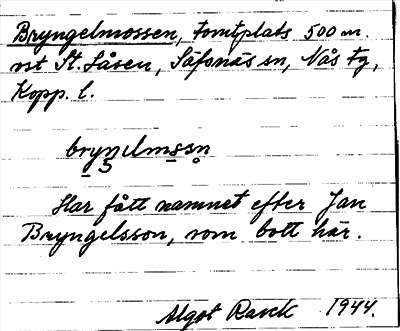 Bryngelmossen, tomtplats 500 m.
nst St. Låsen, Säfsnäs sn, Nås fg,
Kopp. l.
Har fått namnet efter Jan
Bryngelsson, som bott här.
Algot Ranck 1944.